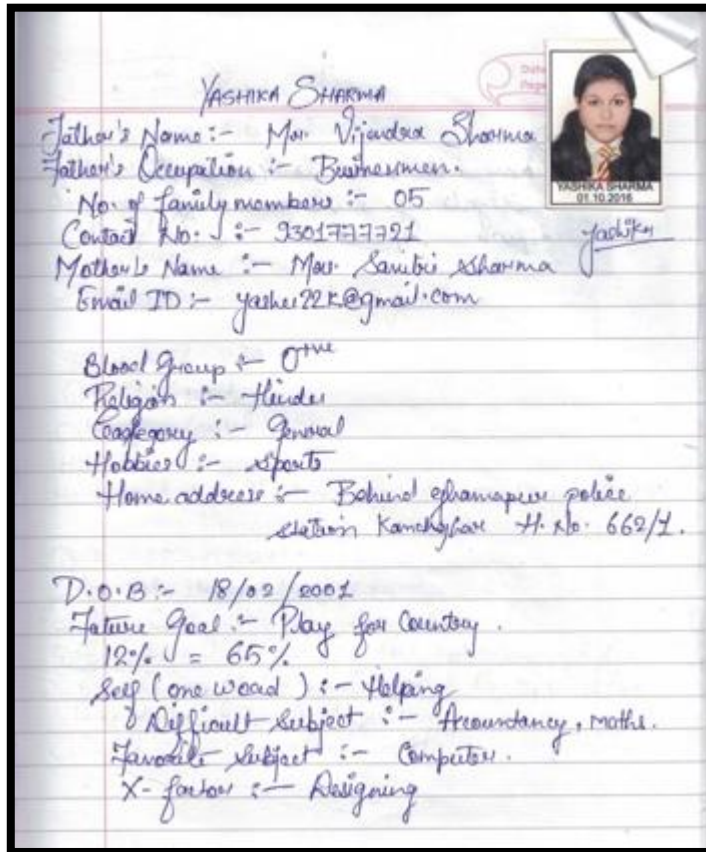 YASHIKA SHARMA
Father's Name :- Mr. Vijendra Sharma
Father's Occupation :- Businessmen.
No. of family members :- 05
Contact No. :- 9301777721
YASHIKA SHARMA
01.10.2016
Yashika
Mother's Name :- Mrs. Sharma
Email ID :- @gmail.com
Blood Group :- O+ve
Religion :- Hindu
:- General
Hobbies :- Sports
Home address :- Behind police
station H. No. 662/1.
D.O.B :- 18/02/2001
Future Goal :- Play for Country.
12% = 65%
Self (one word) :- Helping
Difficult Subject :- Accountancy, maths.
Favorite Subject :- Computer.
X-factor :- Designing